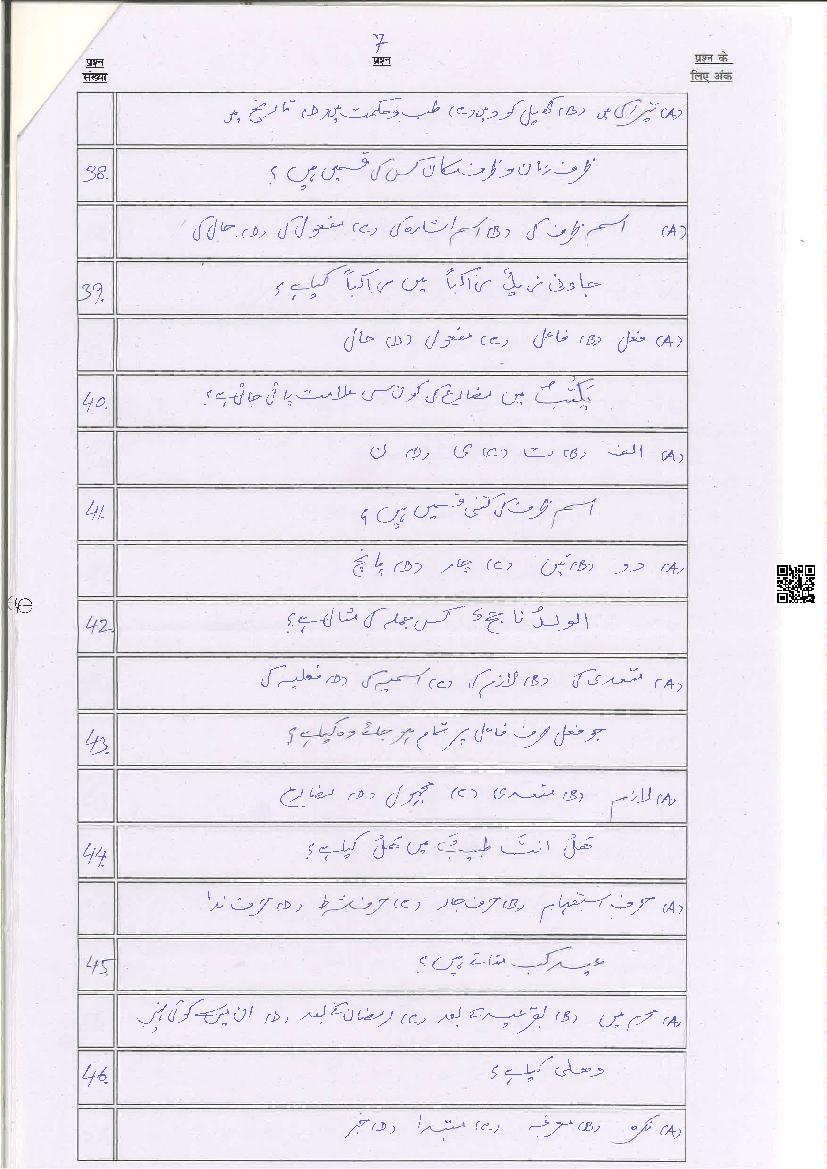 7
प्रश्न संख्या
प्रश्न
प्रश्न के लिए अंक
(A) تیراکی میں (B) کھیل کود میں (C) طب و حکمت میں (D) تاریخ میں
38. ظرف زمان و ظرف مکان کس کی قسمیں ہیں ؟
(A) اسم ظرف کی (B) اسم اشارہ کی (C) مفعول کی (D) حال کی
39. جاءنی زید راکباً میں راکباً کیا ہے ؟
(A) فعل (B) فاعل (C) مفعول (D) حال
40. یَکْتُبُ میں مضارع کی کون سی علامت پائی جاتی ہے ؟
(A) الف (B) ت (C) ی (D) ن
41. اسم ظرف کی کتنی قسمیں ہیں ؟
(A) دو (B) تین (C) چار (D) پانچ
42. الولدُ ناجحٌ کس جملہ کی مثال ہے ؟
(A) متعدی کی (B) لازم کی (C) اسمیہ کی (D) فعلیہ کی
43. جو فعل صرف فاعل پر تمام ہو جائے وہ کیا ہے ؟
(A) لازم (B) متعدی (C) مجہول (D) مضارع
44. ھَلْ انتَ طبیبٌ میں ھَلْ کیا ہے ؟
(A) حرف استفہام (B) حرف جار (C) حرف شرط (D) حرف ندا
45. عید کب مناتے ہیں ؟
(A) محرم میں (B) بقرعید کے بعد (C) رمضان کے بعد (D) ان میں سے کوئی نہیں
46. دھلی کیا ہے ؟
(A) نکرہ (B) معرفہ (C) مبتدا (D) خبر